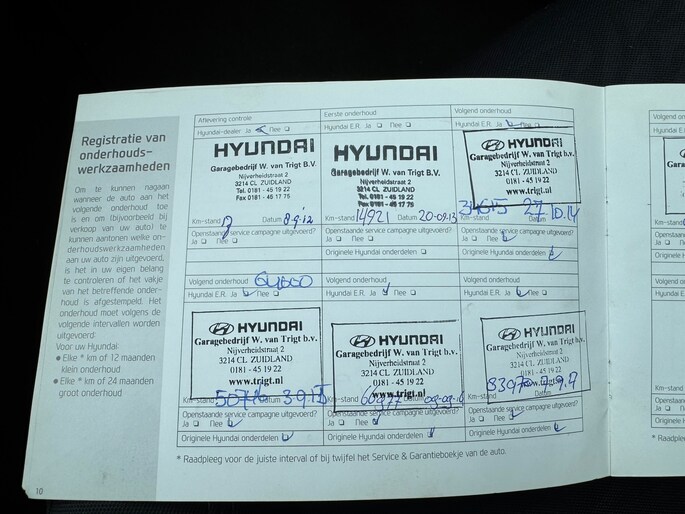 Registratie van
onderhouds-
werkzaamheden
Om te kunnen nagaan
wanneer de auto aan het
volgende onderhoud toe
is en om (bijvoorbeeld bij
verkoop van uw auto) te
kunnen aantonen welke on-
derhoudswerkzaamheden
aan uw auto zijn uitgevoerd,
is het in uw eigen belang
te controleren of het vakje
van het betreffende onder-
houd is afgestempeld. Het
onderhoud moet volgens de
volgende intervallen worden
uitgevoerd:
Voor uw Hyundai:
● Elke * km of 12 maanden
klein onderhoud
● Elke * km of 24 maanden
groot onderhoud
10
Aflevering controle
Hyundai-dealer Ja Nee
HYUNDAI
Garagebedrijf W. van Trigt B.V.
Nijverheidstraat 2
3214 CL ZUIDLAND
Tel. 0181 - 45 19 22
Fax 0181 - 45 17 75
Km-stand Datum 8-9-'12
Openstaande service campagne uitgevoerd?
Ja Nee
Eerste onderhoud
Hyundai E.R. Ja Nee
HYUNDAI
Garagebedrijf W. van Trigt B.V.
Nijverheidstraat 2
3214 CL ZUIDLAND
Tel. 0181 - 45 19 22
Fax 0181 - 45 17 75
Km-stand 14921 Datum 20-09-13
Openstaande service campagne uitgevoerd?
Ja Nee
Originele Hyundai onderdelen
Volgend onderhoud
Hyundai E.R. Ja Nee
HYUNDAI
Garagebedrijf W. van Trigt b.v.
Nijverheidstraat 2
3214 CL ZUIDLAND
0181 - 45 19 22
www.trigt.nl
Km-stand Datum 27 10.14
Openstaande service campagne uitgevoerd?
Ja Nee
Originele Hyundai onderdelen
Volgend onderhoud
Hyundai E.R. Ja Nee
HYUNDAI
Garagebedrijf W. van Trigt b.v.
Nijverheidstraat 2
3214 CL ZUIDLAND
0181 - 45 19 22
www.trigt.nl
Km-stand Datum
Openstaande service campagne uitgevoerd?
Ja Nee
Originele Hyundai onderdelen
Volgend onderhoud
Hyundai E.R. Ja Nee
HYUNDAI
Garagebedrijf W. van Trigt b.v.
Nijverheidstraat 2
3214 CL ZUIDLAND
0181 - 45 19 22
www.trigt.nl
Km-stand Datum
Openstaande service campagne uitgevoerd?
Ja Nee
Originele Hyundai onderdelen
Volgend onderhoud
Hyundai E.R. Ja Nee
HYUNDAI
Garagebedrijf W. van Trigt b.v.
Nijverheidstraat 2
3214 CL ZUIDLAND
0181 - 45 19 22
www.trigt.nl
Km-stand Datum
Openstaande service campagne uitgevoerd?
Ja Nee
Originele Hyundai onderdelen
* Raadpleeg voor de juiste interval of bij twijfel het Service & Garantieboekje van de auto.